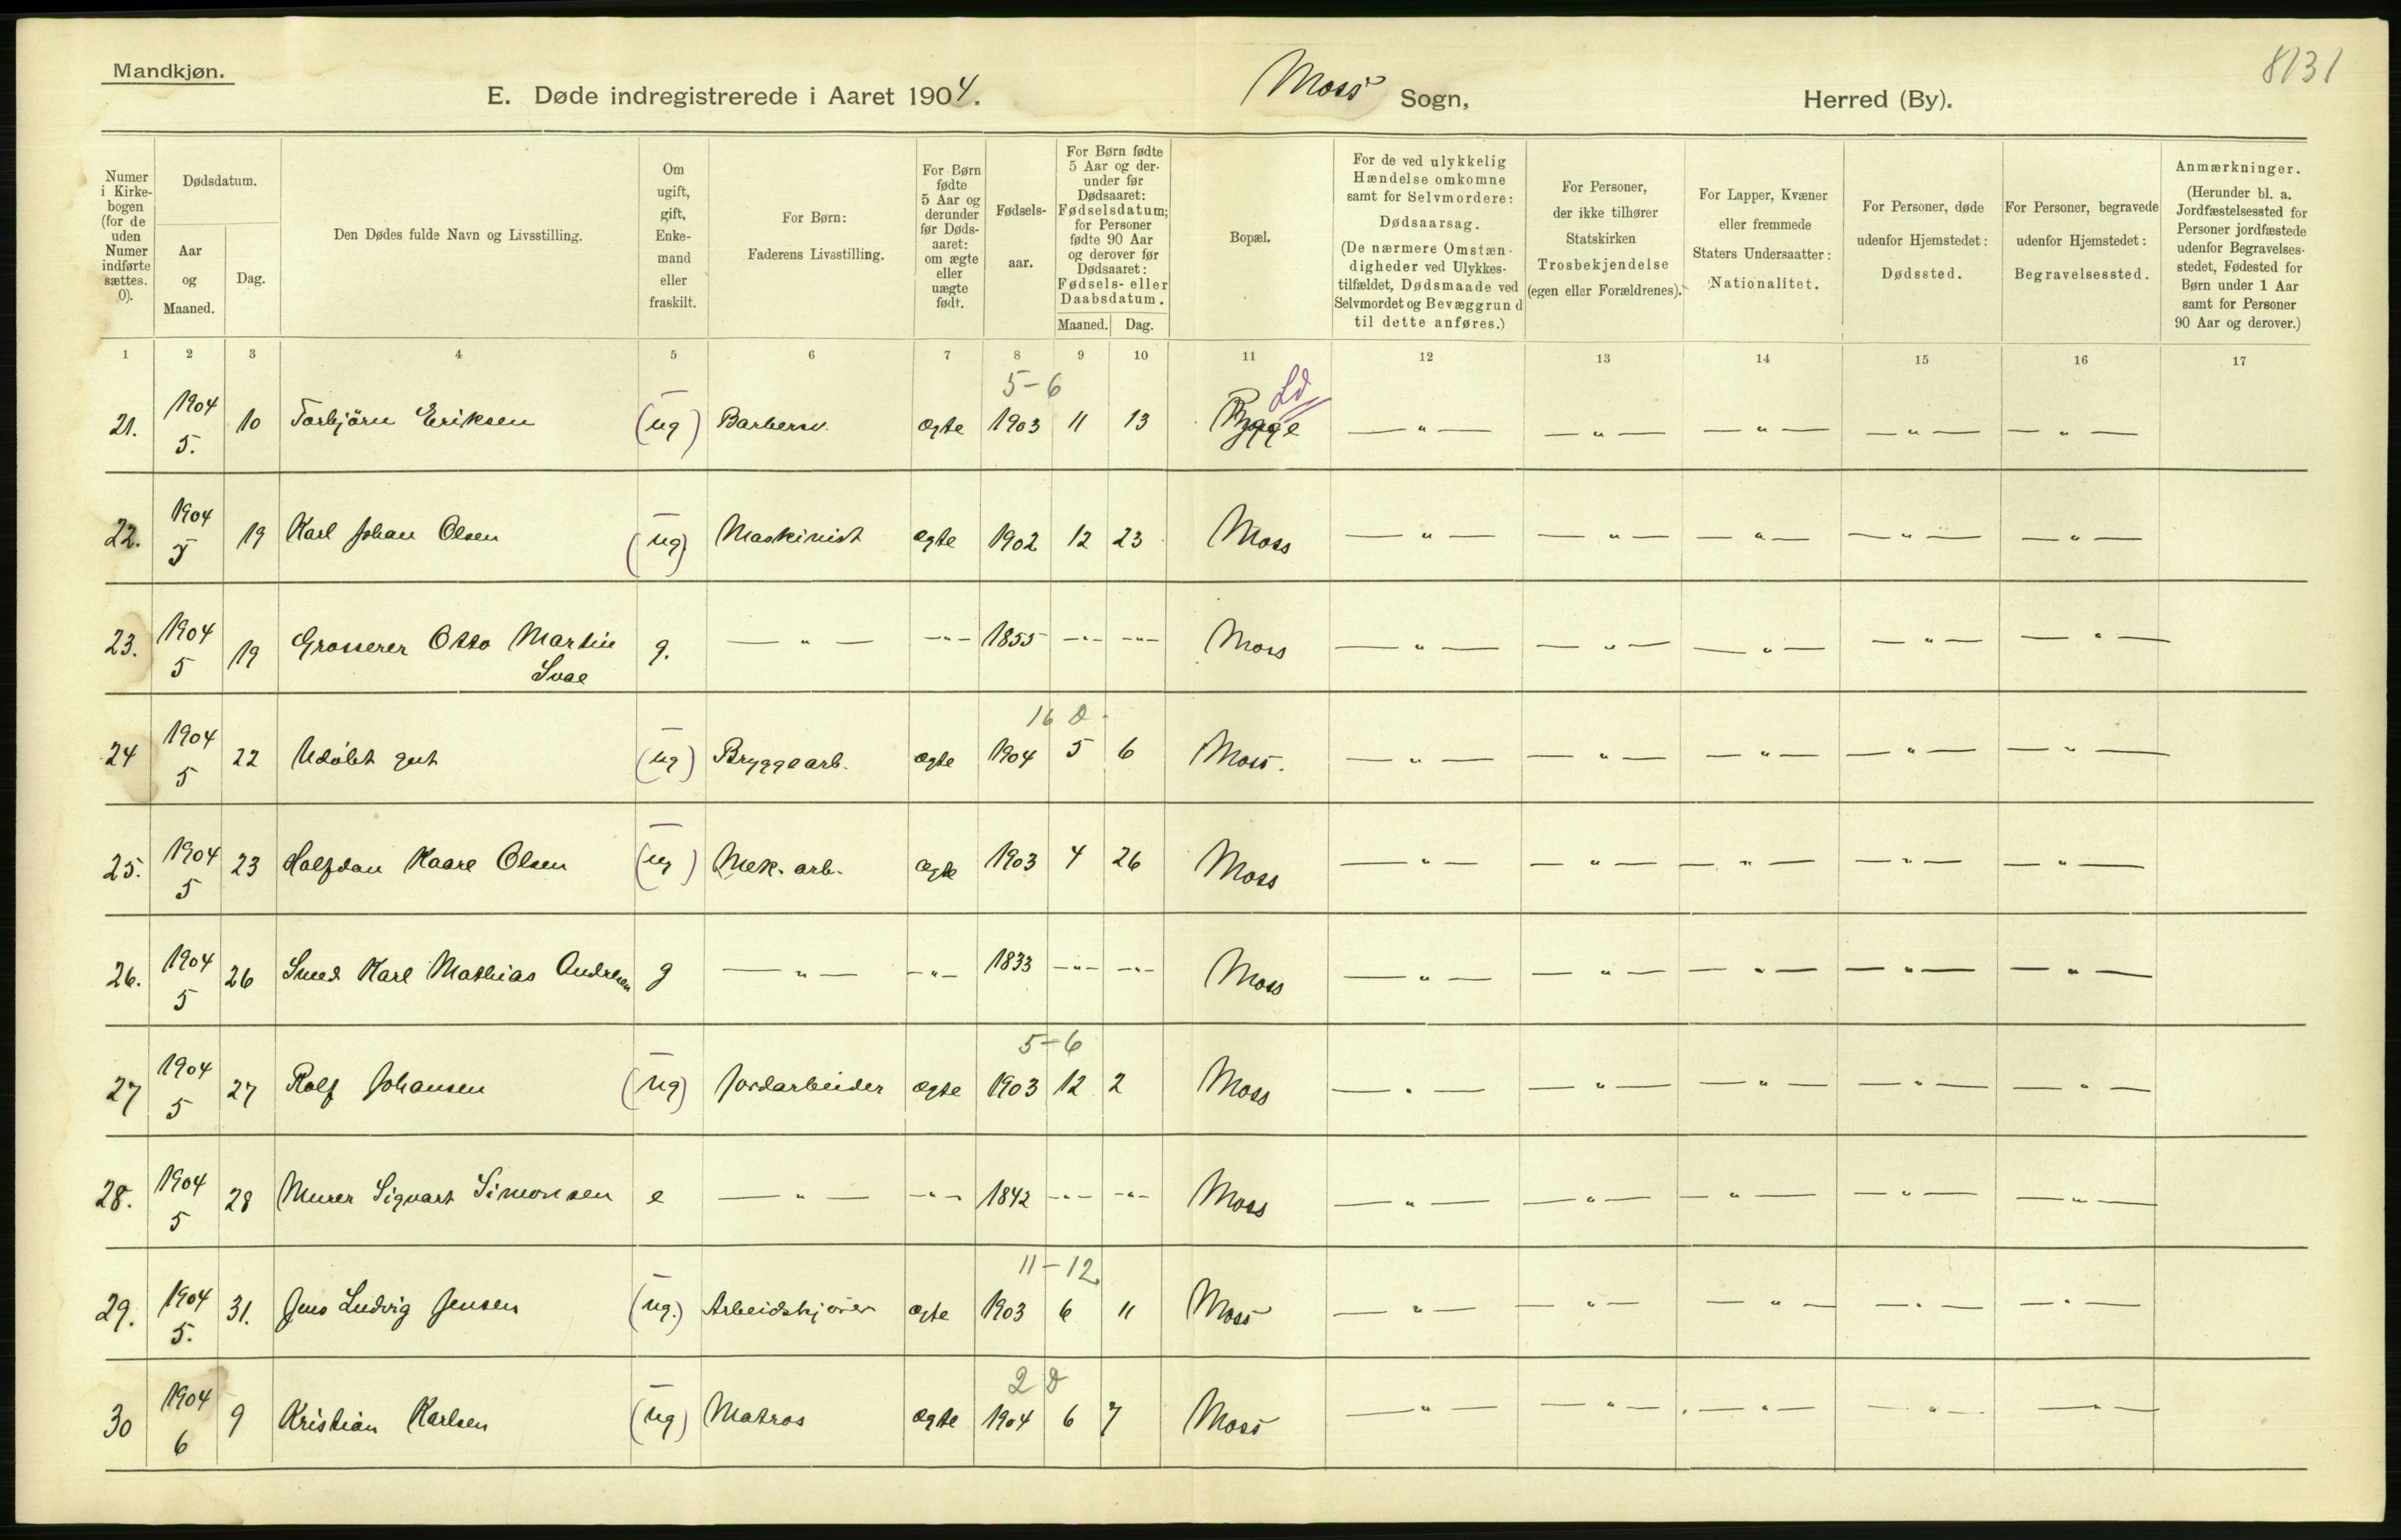 Mandkjøn.
8131
E. Døde indregistrerede i Aaret 1904. Moss Sogn, Herred (By).
Numer i Kirkebogen (for de uden Numer indførte sættes. 0).
Dødsdatum.
Aar og Maaned.
Dag.
Den Dødes fulde Navn og Livsstilling.
Om ugift, gift, Enkemand eller fraskilt.
For Børn: Faderens Livsstilling.
For Børn fødte 5 Aar og derunder før Dødsaaret: om ægte eller uægte født.
Fødselsaar.
For Børn fødte 5 Aar og derunder før Dødsaaret: Fødselsdatum; for Personer fødte 90 Aar og derover før Dødsaaret: Fødsels- eller Daabsdatum.
Maaned. Dag.
Bopæl.
For de ved ulykkelig Hændelse omkomne samt for Selvmordere: Dødsaarsag. (De nærmere Omstændigheder ved Ulykkestilfældet, Dødsmaade ved Selvmordet og Bevæggrund til dette anføres.)
For Personer, der ikke tilhører Statskirken Trosbekjendelse (egen eller Forældrenes).
For Lapper, Kvæner eller fremmede Staters Undersaatter: Nationalitet.
For Personer, døde udenfor Hjemstedet: Dødssted.
For Personer, begravede udenfor Hjemstedet: Begravelsessted.
Anmærkninger. (Herunder bl. a. Jordfæstelsessted for Personer jordfæstede udenfor Begravelsesstedet, Fødested for Børn under 1 Aar samt for Personer 90 Aar og derover.)
1 2 3 4 5 6 7 8 9 10 11 12 13 14 15 16 17
5-6 Ld
21. 1904 5. 10 Torbjörn Eriksen (ug) Barbersv. ægte 1903 11 13 Rygge — " — — " — — " — — " — — " —
22. 1904 5 19 Karl Johan Olsen (ug) Maskinist ægte 1902 12 23 Moss — " — — " — — " — — " — — " —
23. 1904 5 19 Grosserer Otto Martin Svae g. — " — — " — 1855 — " — — " — Moss — " — — " — — " — — " — — " —
16 d.
24 1904 5 22 Udøbt gut (ug) Bryggearb. ægte 1904 5 6 Moss. — " — — " — — " — — " — — " —
25. 1904 5 23 Halfdan Kaare Olsen (ug) Mek. arb. ægte 1903 4 26 Moss — " — — " — — " — — " — — " —
26. 1904 5 26 Smed Karl Mathias Andresen g — " — — " — 1833 — " — — " — Moss — " — — " — — " — — " — — " —
5-6
27 1904 5 27 Rolf Johansen (ug) Jordarbeider ægte 1903 12 2 Moss — " — — " — — " — — " — — " —
28. 1904 5 28 Murer Sigvart Simonsen e — " — — " — 1842 — " — — " — Moss — " — — " — — " — — " — — " —
11-12
29. 1904 5. 31. Jens Ludvig Jensen (ug.) Arbeidskjører ægte 1903 6 11 Moss — " — — " — — " — — " — — " —
2 d
30 1904 6 9 Kristian Karlsen (ug) Matros ægte 1904 6 7 Moss — " — — " — — " — — " — — " —